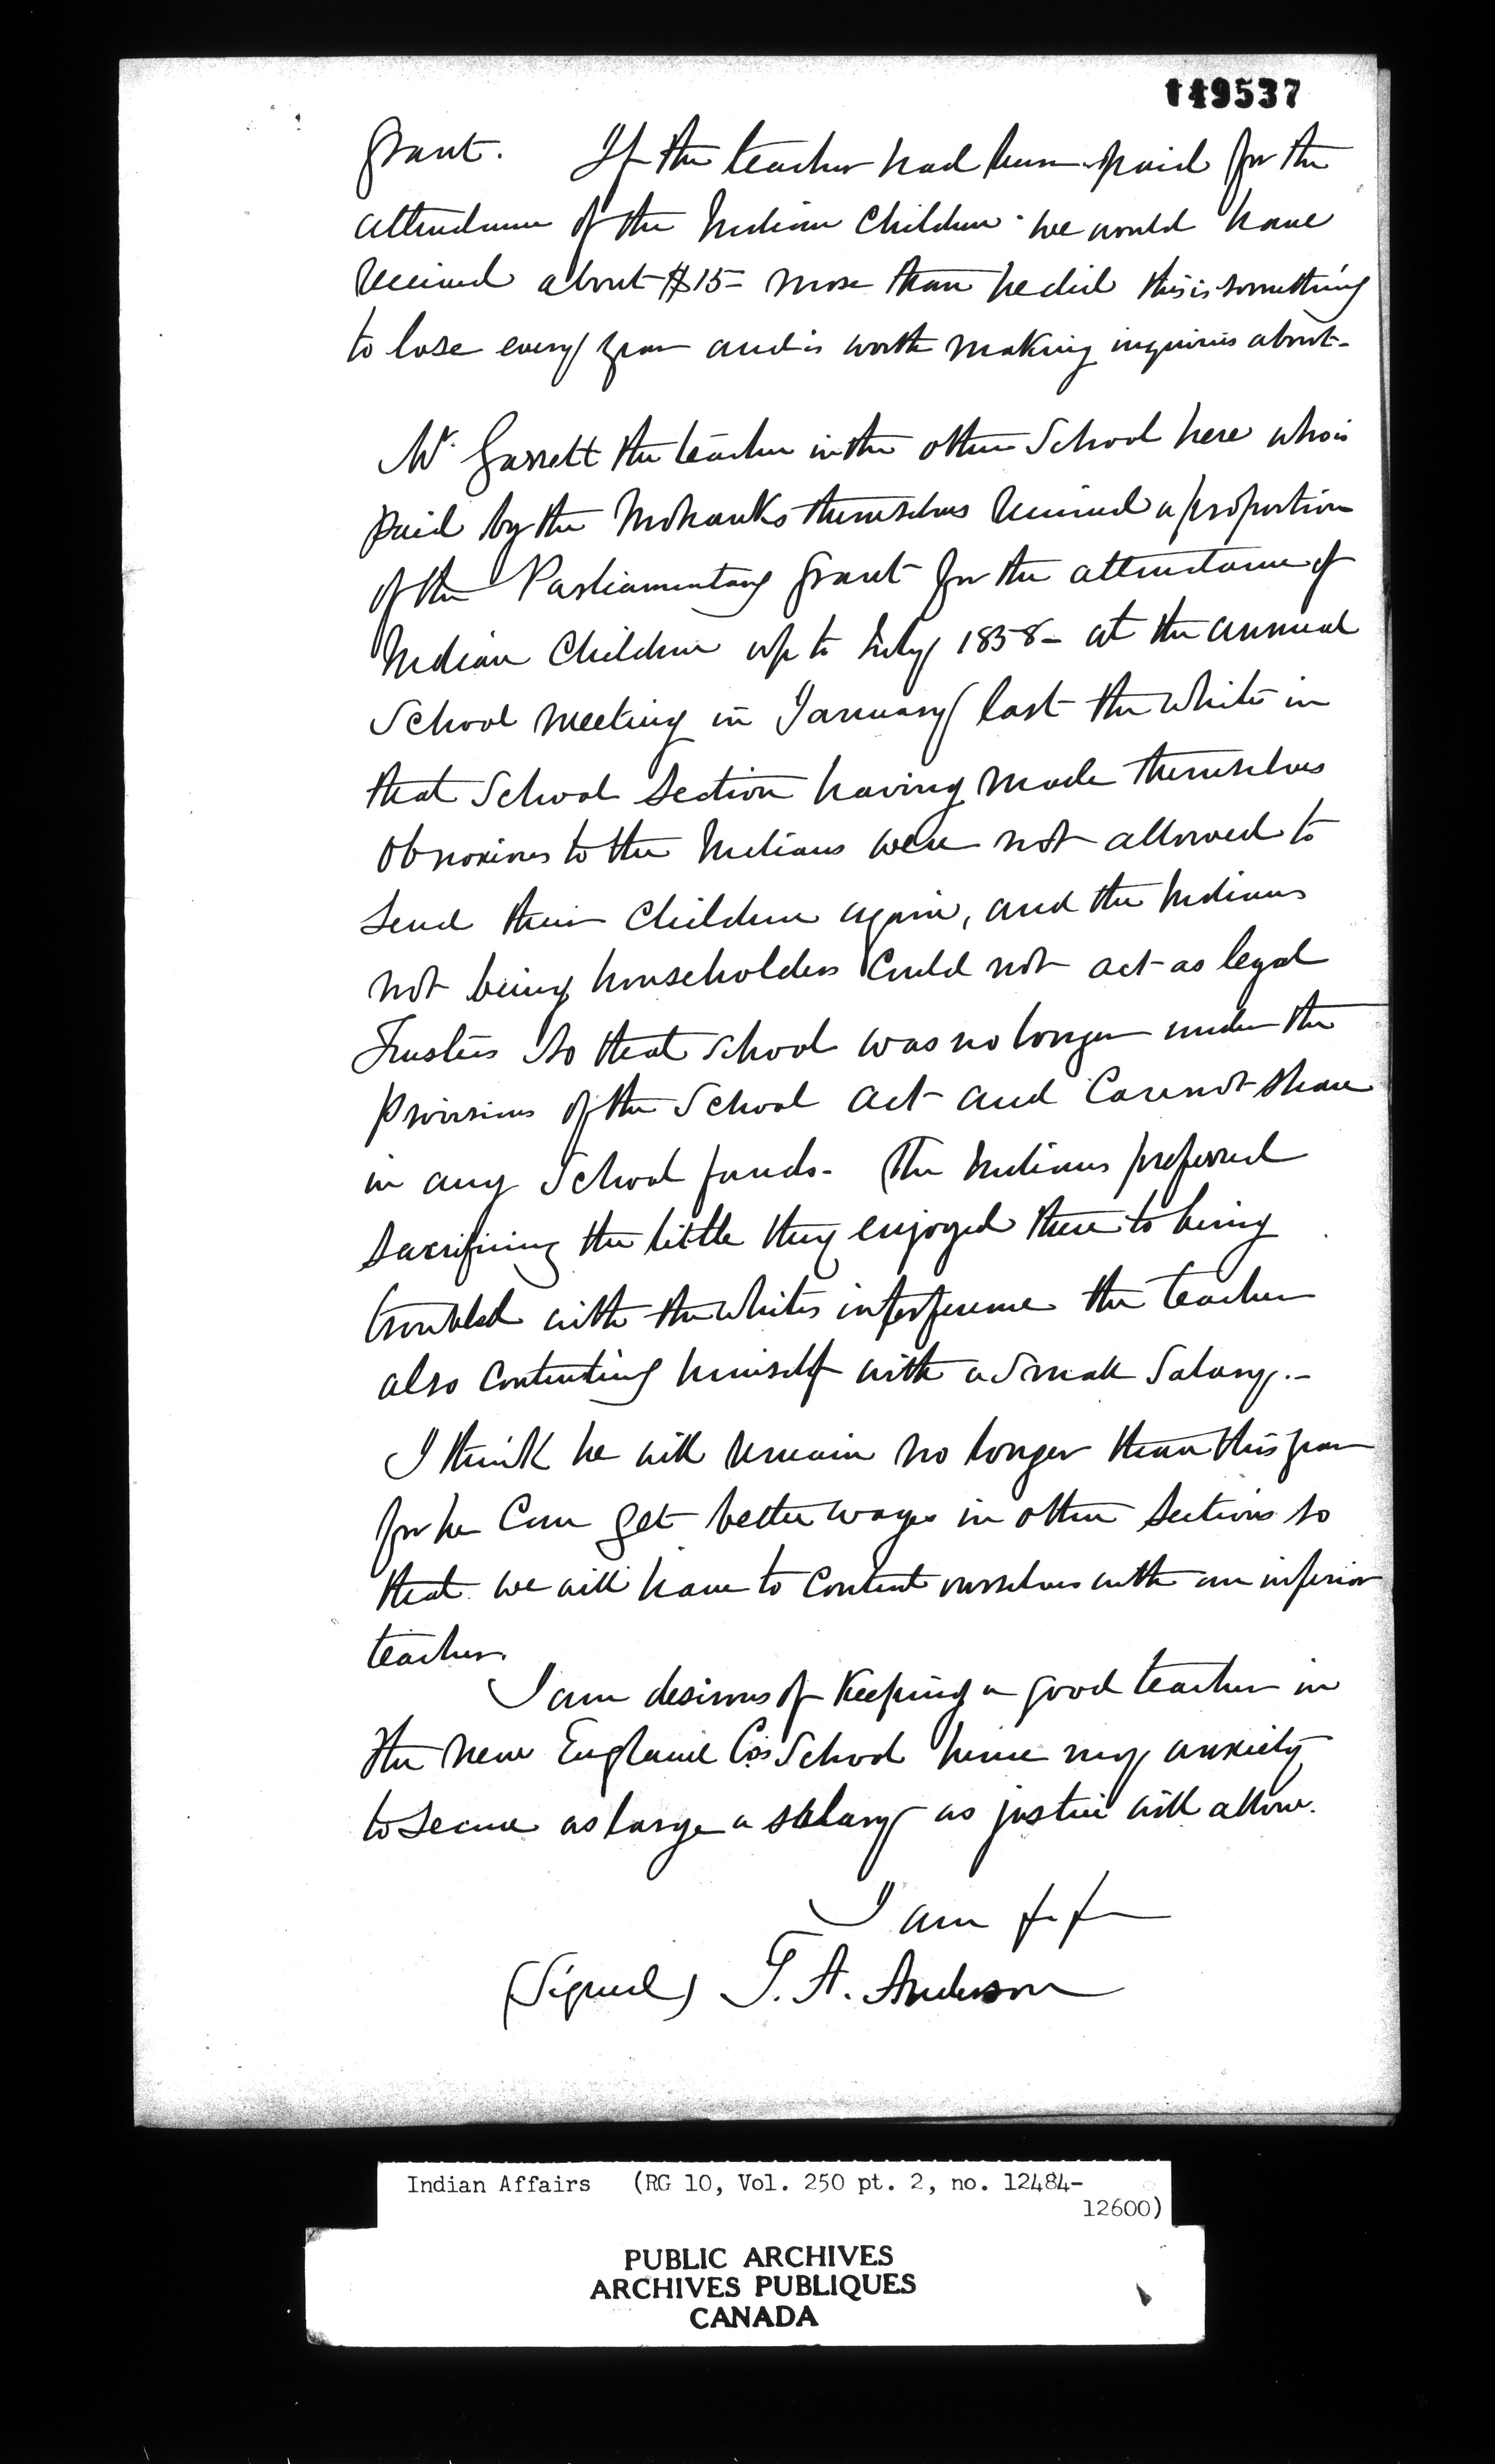 149537
Grant. If the teacher had been paid for the
attendance of the Indian Children we would have
received about $15- more than he did this is something
to lose every year and is worth making inquiries about-
Mr. Garrett the teacher in the other School here who is
paid by the Mohawks themselves received a proportion
of the Parliamentary Grant for the attendance of
Indian Children up to July 1858- at the annual
School meeting in January last the whites in
that School section having made themselves
obnoxious to the Indians were not allowed to
send their Children again, and the Indians
not being householders could not act as legal
Trustees so that school was no longer under the
provisions of the School Act and Cannot share
in any School funds- The Indians preferred
sacrificing the little they enjoyed there to being
troubled with the whites interference the teacher
also contenting himself with a small salary.-
I think he will remain no longer than this year
for he Can get better wages in other sections so
that we will have to Content ourselves with an inferior
teacher.
I am desirous of Keeping a good teacher in
the New England Co's School hence my anxiety
to secure as large a salary as justice will allow.
I am &c &c
(Signed) T. A. Anderson
Indian Affairs (RG 10, Vol. 250 pt. 2, no. 12484-
12600)
PUBLIC ARCHIVES
ARCHIVES PUBLIQUES
CANADA